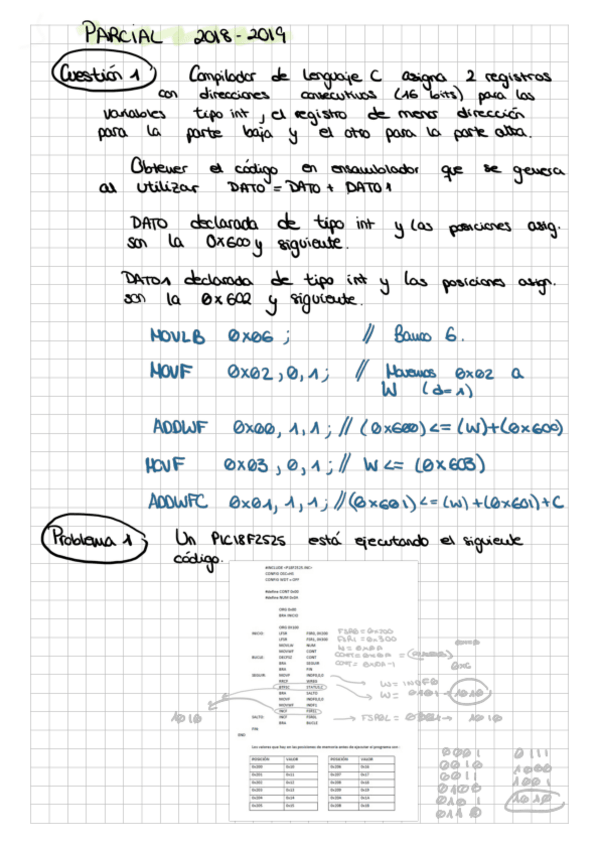 PARCIAL 2018-2019
Cuestión 1) Compilador de lenguaje C asigna 2 registros
con direcciones consecutivas (16 bits) para las
variables tipo int, el registro de menor dirección
para la parte baja y el otro para la parte alta.
Obtener el código en ensamblador que se genera
al utilizar DATO = DATO + DATO1
DATO declarada de tipo int y las posiciones asig.
son la 0x600 y siguiente.
DATO1 declarada de tipo int y las posiciones asign.
son la 0x602 y siguiente.
MOVLB 0x06 ; // Banco 6.
MOVF 0x02, 0, 1 ; // Movemos 0x02 a
W (d=1)
ADDWF 0x00, 1, 1 ; // (0x600) <= (W)+(0x600)
MOVF 0x03, 0, 1 ; // W <= (0x603)
ADDWFC 0x01, 1, 1 ; // (0x601) <= (W) + (0x601) + C
Problema 1) Un PIC18F2525 está ejecutando el siguiente
código.
#INCLUDE <P18F2525.INC>
#define CONT 0x00
ORG 0x00
BRA INICIO
ORG 0x100
INICIO LFSR FSR0, 0x200
LFSR FSR1, 0x300
MOVLW NUM
MOVWF CONT
BRA SEGUIR
BRA FIN
BRA SALTO
BRA BUCLE
FIN
END
FSR0 = 0x200
FSR1 = 0x300
W = INDF0
1010
Los valores que hay en las posiciones de memoria antes de ejecutar el programa son:
POSICIÓN VALOR POSICIÓN VALOR
0x200 0x10 0x206 0x16
0x201 0x11 0x207 0x17
0001 0111
0010 1000
0011 1001
0100 1010
0101
0110